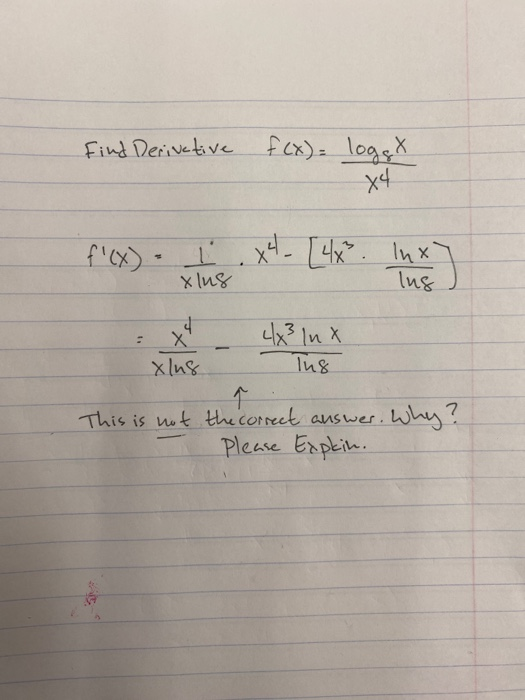 Find Derivative f(x) = log₈x / x⁴
f'(x) = 1 / (x ln8) · x⁴ - [4x³ · ln x / ln8]
= x⁴ / (x ln8) - 4x³ ln x / ln8
↑
This is not the correct answer. Why?
Please Explain.